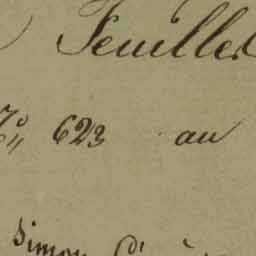 Feuillet
N° 623 au
Simon